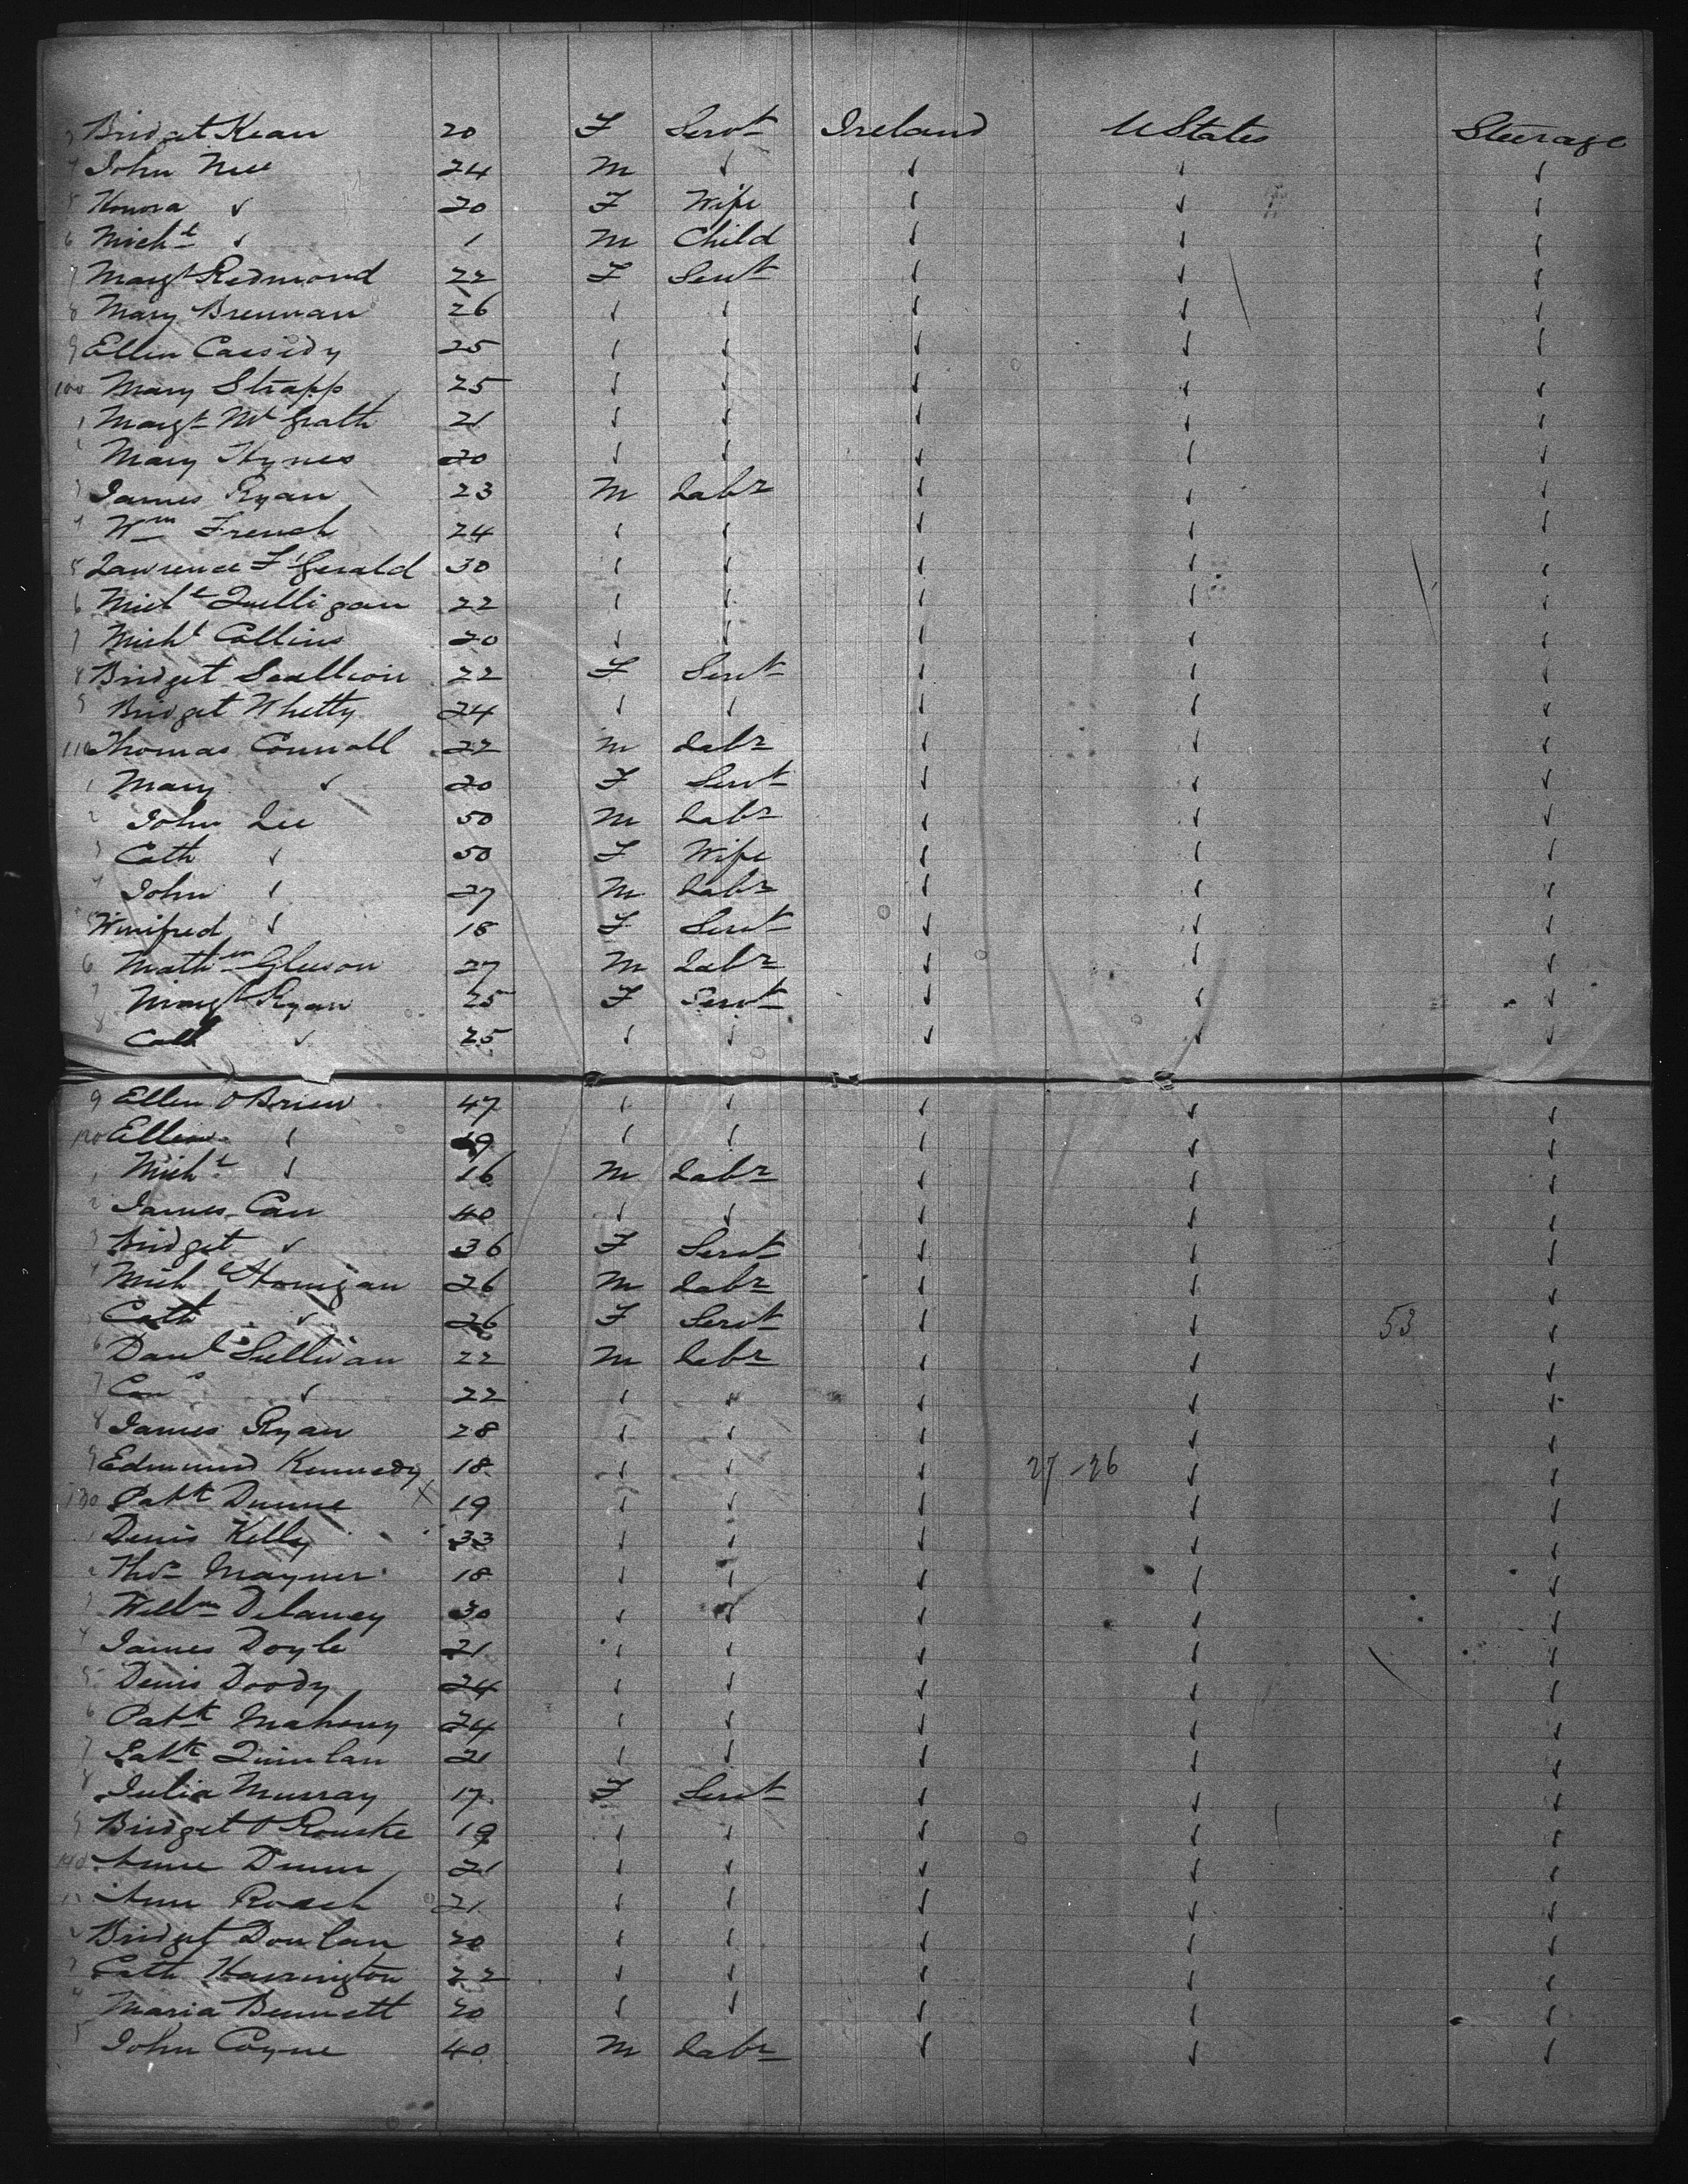 3 Bridget Kean 20 F Servt Ireland U States Steerage
4 John Nee 24 M ✓ ✓ ✓ ✓
5 Honora ✓ 20 F Wife ✓ ✓ ✓
6 Michl ✓ 1 M Child ✓ ✓ ✓
7 Margt Redmond 22 F Servt ✓ ✓ ✓
8 Mary Brennan 26 ✓ ✓ ✓ ✓ ✓
9 Ellen Cassidy 25 ✓ ✓ ✓ ✓ ✓
100 Mary Strapp 25 ✓ ✓ ✓ ✓ ✓
1 Margt McGrath 21 ✓ ✓ ✓ ✓ ✓
2 Mary Hynes 20 ✓ ✓ ✓ ✓ ✓
3 James Ryan 23 M Labr ✓ ✓ ✓
4 Wm French 24 ✓ ✓ ✓ ✓ ✓
5 Lawrence F'Gerald 30 ✓ ✓ ✓ ✓ ✓
6 Michl Quilligan 22 ✓ ✓ ✓ ✓ ✓
7 Michl Collins 20 ✓ ✓ ✓ ✓ ✓
8 Bridget Scallion 22 F Servt ✓ ✓ ✓
9 Bridget Whetty 24 ✓ ✓ ✓ ✓ ✓
110 Thomas Connoll 22 M Labr ✓ ✓ ✓
1 Mary ✓ 20 F Servt ✓ ✓ ✓
2 John Lee 50 M Labr ✓ ✓ ✓
3 Cath ✓ 50 F Wife ✓ ✓ ✓
4 John ✓ 27 M Labr ✓ ✓ ✓
5 Winifred ✓ 18 F Servt ✓ ✓ ✓
6 Matthew Gleeson 27 M Labr ✓ ✓ ✓
7 Margt Ryan 25 F Servt ✓ ✓ ✓
8 Cath ✓ 25 ✓ ✓ ✓ ✓ ✓
9 Ellen O Brien 47 ✓ ✓ ✓ ✓ ✓
120 Ellen ✓ 19 ✓ ✓ ✓ ✓ ✓
1 Michl ✓ 16 M Labr ✓ ✓ ✓
2 James Carr 40 ✓ ✓ ✓ ✓ ✓
3 Bridget ✓ 36 F Servt ✓ ✓ ✓
4 Michl Horrigan 26 M Labr ✓ ✓ ✓
5 Cath ✓ 26 F Servt ✓ ✓ 53 ✓
6 Danl Sullivan 22 M Labr ✓ ✓ ✓
7 Cors ✓ 22 ✓ ✓ ✓ ✓ ✓
8 James Ryan 28 ✓ ✓ ✓ ✓ ✓
9 Edmund Kennedy 18 ✓ ✓ ✓ 27-26 ✓ ✓
130 Patk Dunne X 19 ✓ ✓ ✓ ✓ ✓
1 Denis Kelly 33 ✓ ✓ ✓ ✓ ✓
2 Thos Mayner 18 ✓ ✓ ✓ ✓ ✓
3 Willm Delaney 30 ✓ ✓ ✓ ✓ ✓
4 James Doyle 21 ✓ ✓ ✓ ✓ ✓
5 Denis Doody 24 ✓ ✓ ✓ ✓ ✓
6 Patk Mahony 24 ✓ ✓ ✓ ✓ ✓
7 Patk Quinlan 21 ✓ ✓ ✓ ✓ ✓
8 Julia Murray 17 F Servt ✓ ✓ ✓
9 Bridget O Rourke 19 ✓ ✓ ✓ ✓ ✓
140 Anne Dunn 21 ✓ ✓ ✓ ✓ ✓
1 Ann Roach 21 ✓ ✓ ✓ ✓ ✓
2 Bridget Donlan 20 ✓ ✓ ✓ ✓ ✓
3 Cath Harrington 22 ✓ ✓ ✓ ✓ ✓
4 Maria Bennett 20 ✓ ✓ ✓ ✓ ✓
5 John Coyne 40 M Labr ✓ ✓ ✓